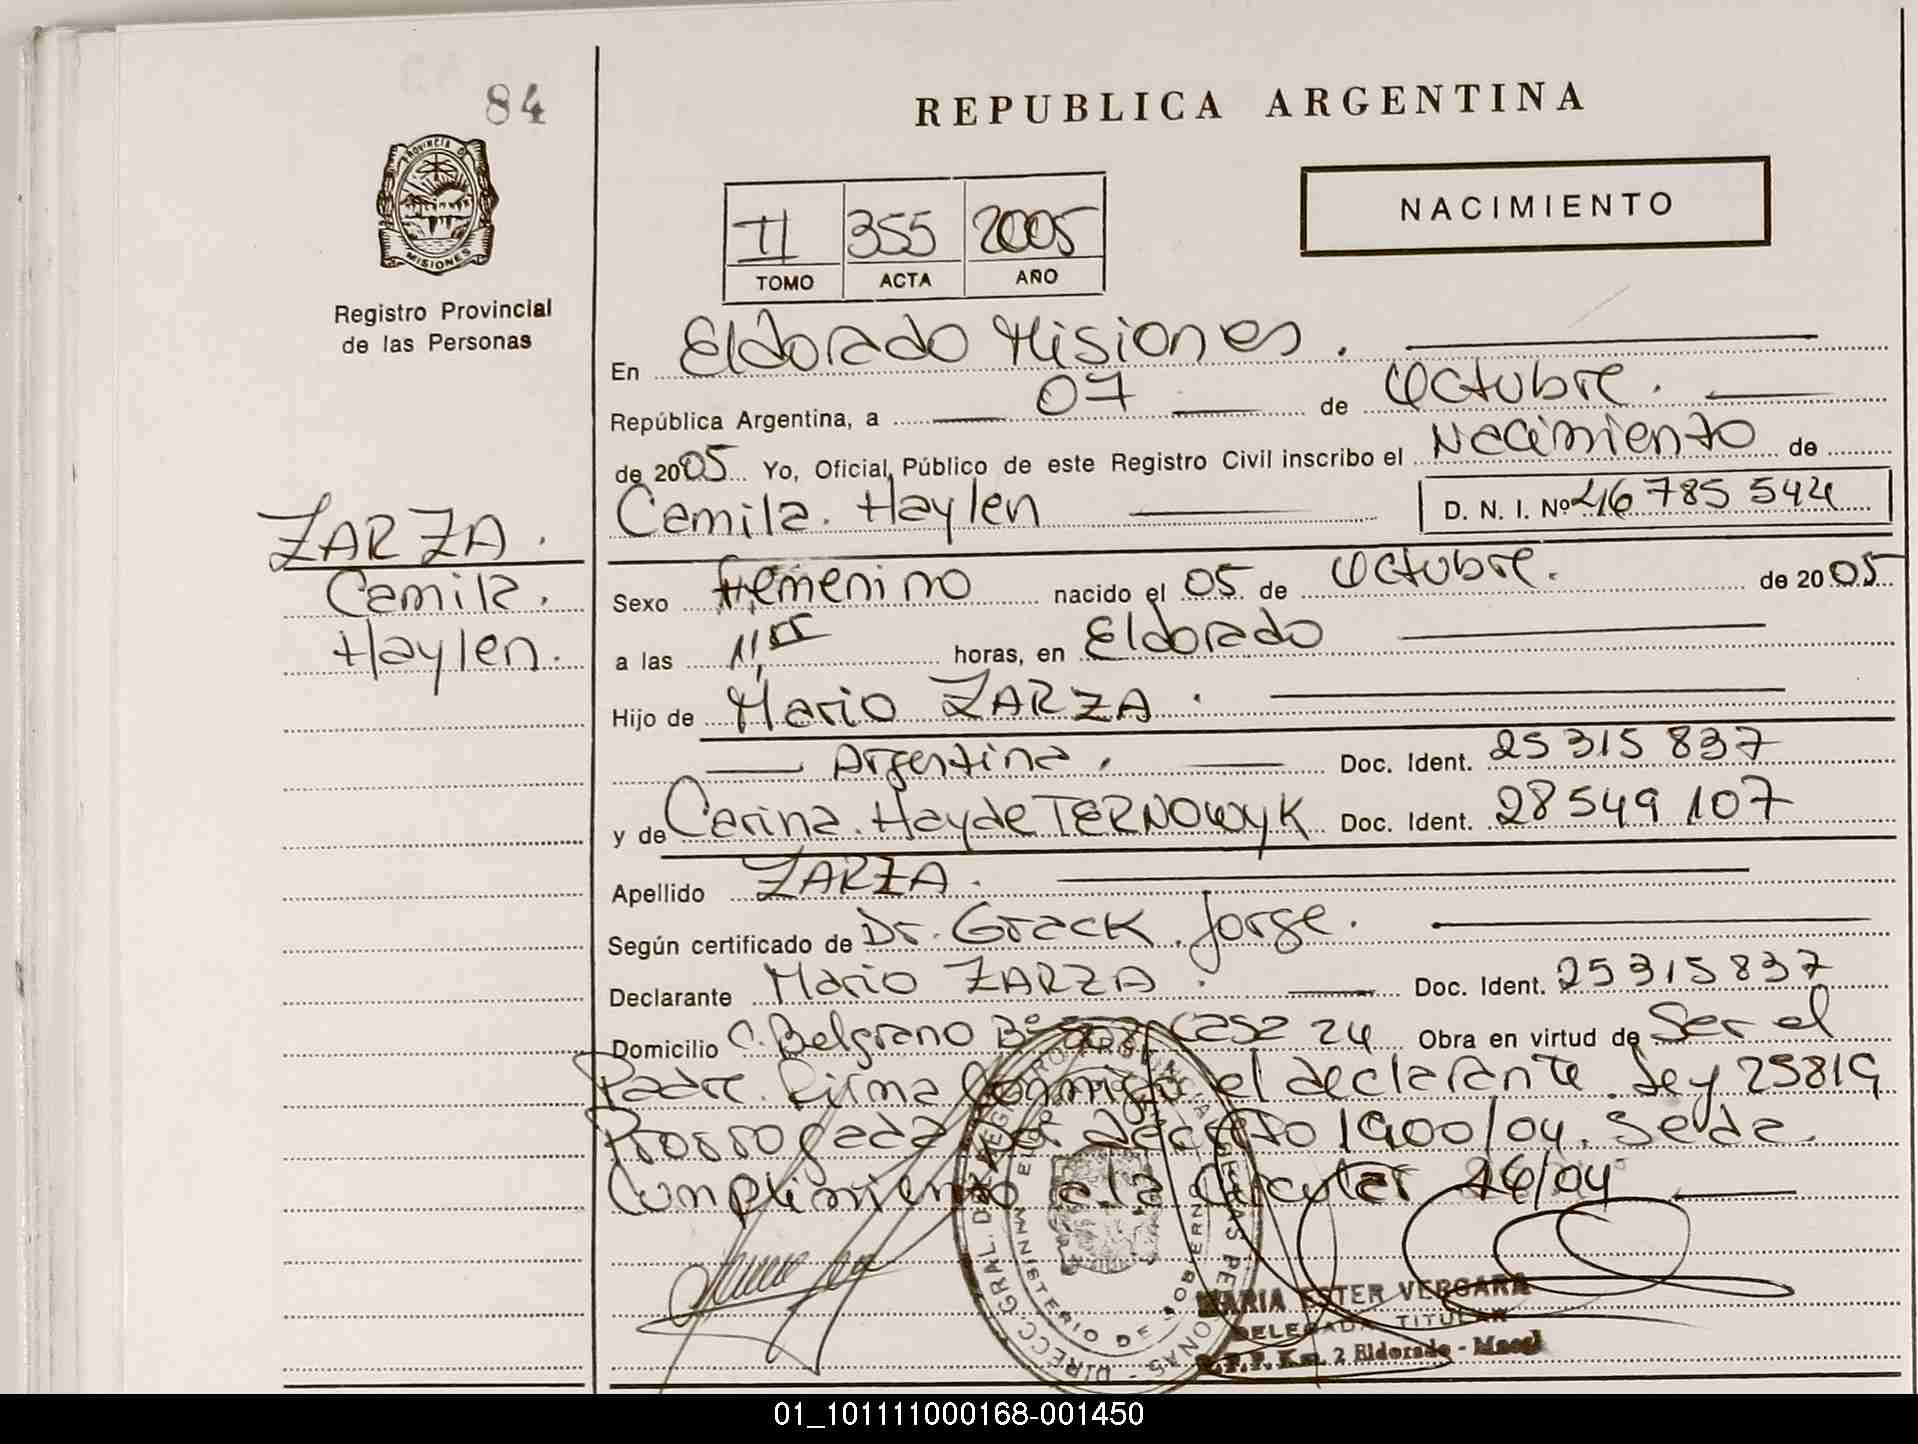 84
REPUBLICA ARGENTINA
PROVINCIA DE
MISIONES
Registro Provincial
de las Personas
NACIMIENTO
II 355 2005
TOMO ACTA AÑO
En Eldorado Misiones.
República Argentina, a 07 de Octubre.
de 2005 Yo, Oficial Público de este Registro Civil inscribo el Nacimiento de
Camila. Haylen D. N. I. Nº 46 785 544
ZARZA.
Camila.
Haylen.
Sexo Femenino nacido el 05 de Octubre. de 2005
a las 11,15 horas, en Eldorado
Hijo de Mario ZARZA.
Argentina. Doc. Ident. 25 315 837
y de Carina. Hayde TERNOWYK Doc. Ident. 28 549 107
Apellido ZARZA.
Según certificado de Dr. Grack Jorge.
Declarante Mario ZARZA. Doc. Ident. 25 315 837
Domicilio C. Belgrano Bº Casa 24 Obra en virtud de Ser el
Padre. Firma Conmigo el declarante. Ley 25819
Prorrogada por decreto 1900/04. Se da
Cumplimiento a la Circular 26/04
DIRECC. GRAL. DEL REGISTRO PROVINCIAL DE LAS PERSONAS
MINISTERIO DE GOBIERNO
MARIA ESTER VERGARA
DELEGADA TITULAR
R.P.P. Km. 2 Eldorado - Mnes
01_101111000168-001450